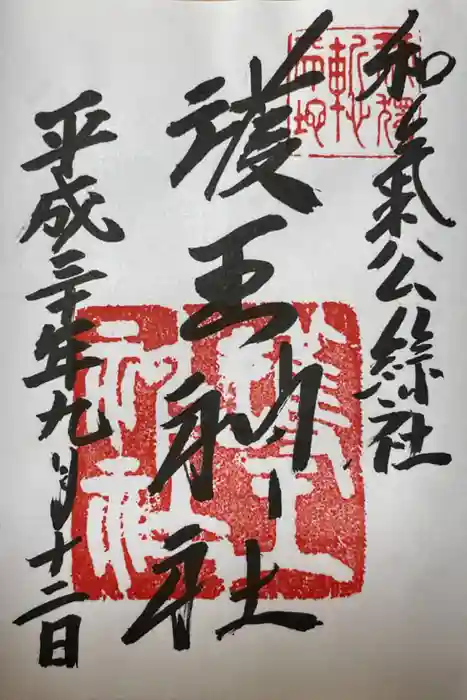 和氣公綜社
護王神社
平成三十年九月十二日
護王神社